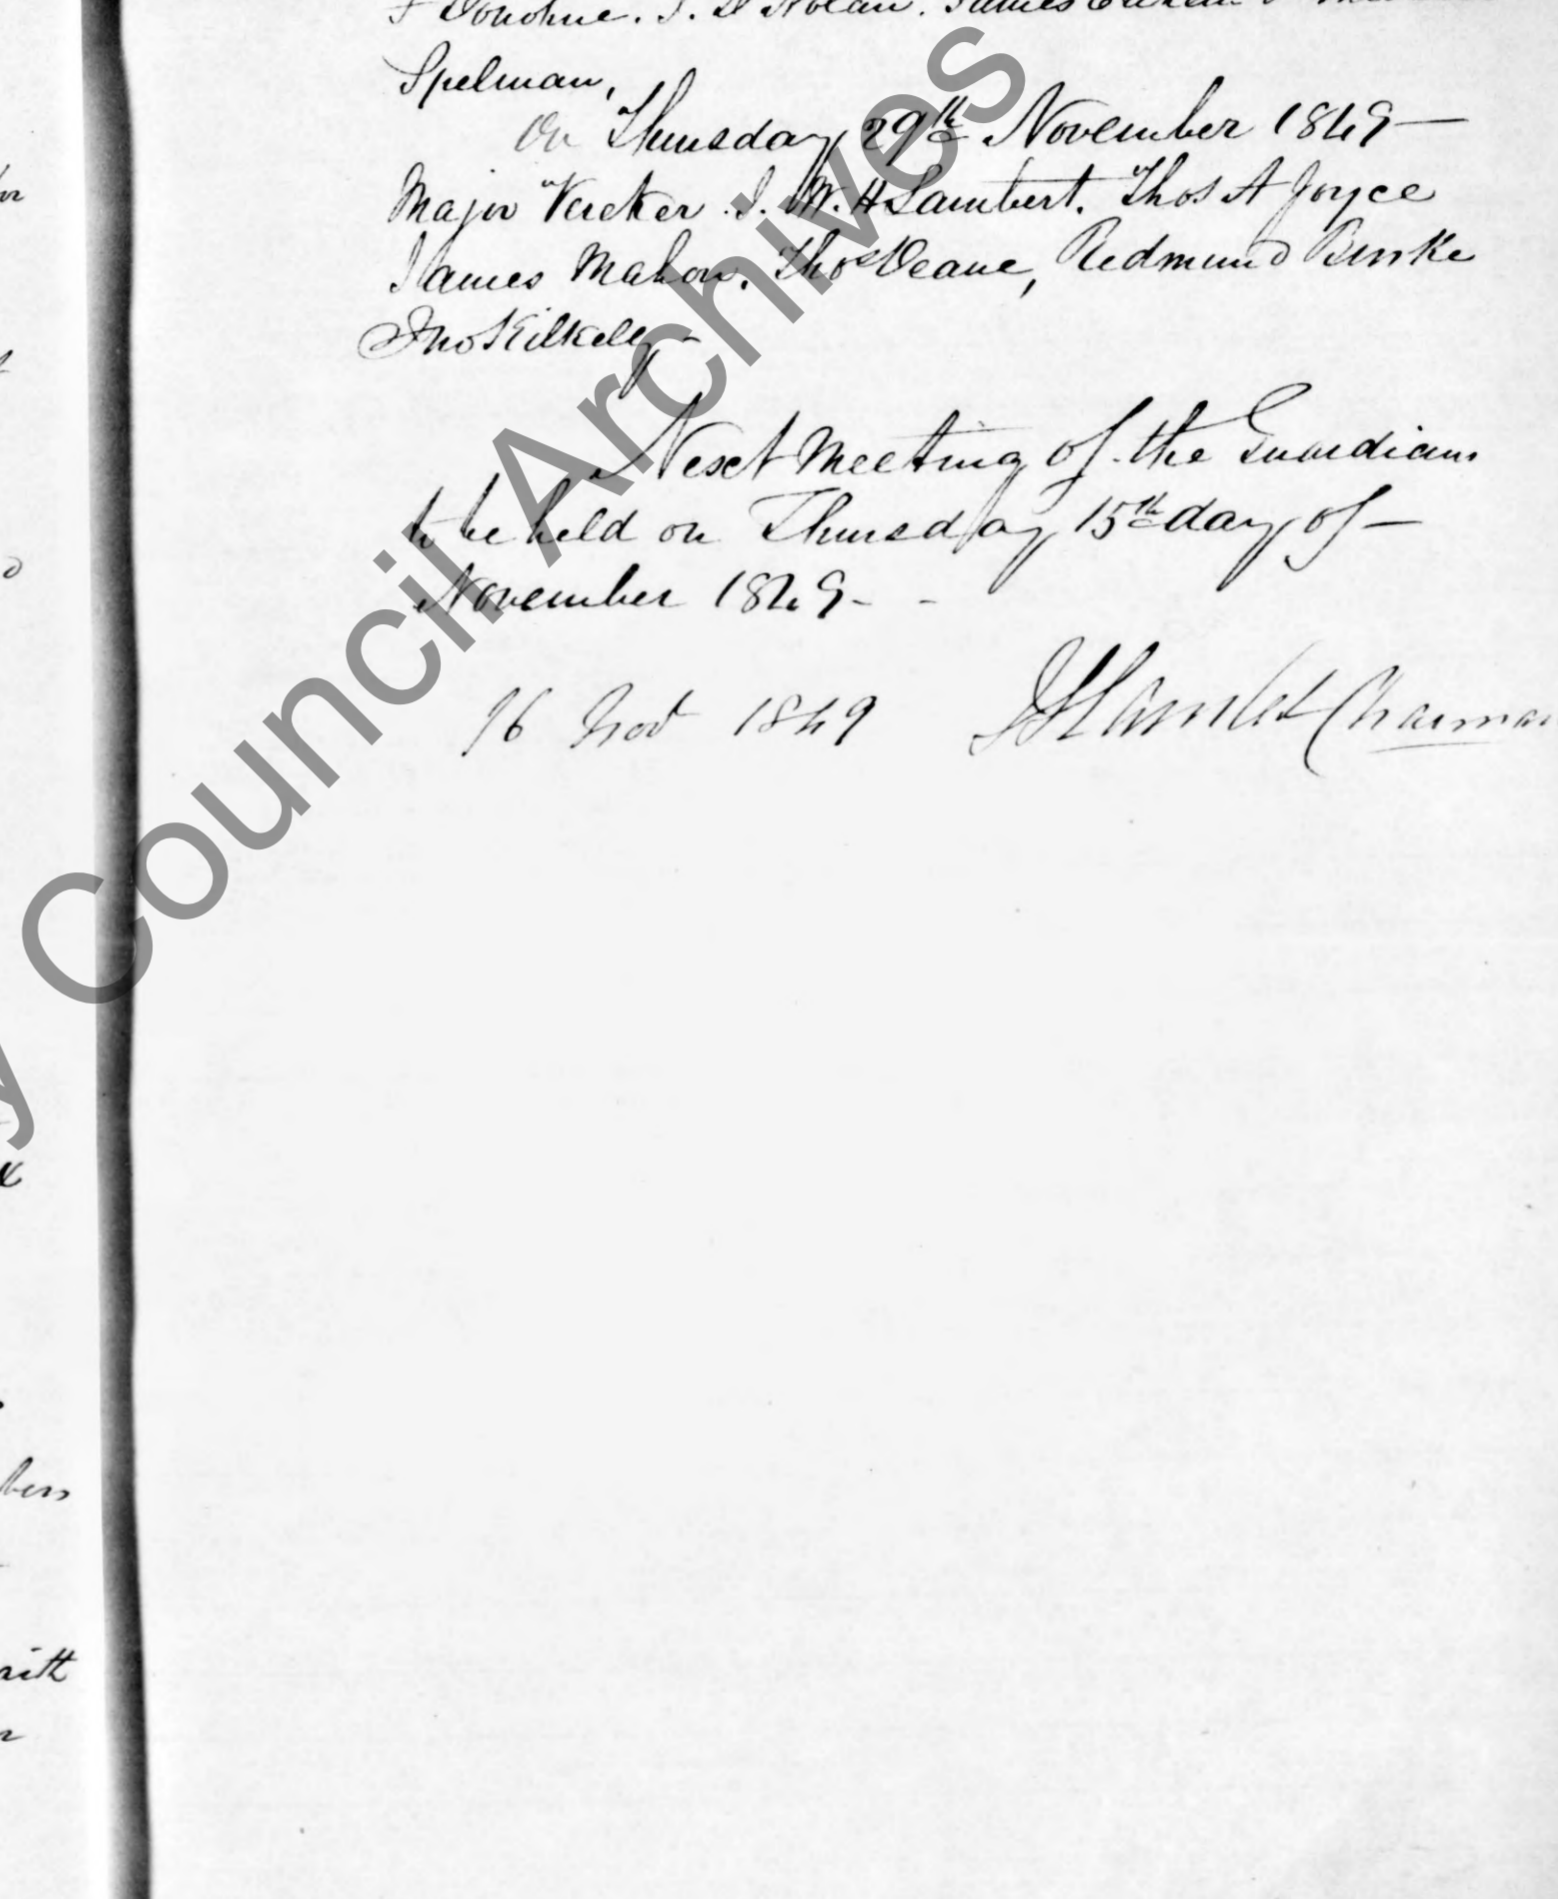 F Donohue. J. D Nolan. James
Spelman,
On Thursday 29th November 1849 —
Major Vereker J. W. H Lambert. Thos A Joyce
James Mahon. Thos Deane, Redmund Burke
Jno Kilkelly
Next Meeting of the Guardians
to be held on Thursday 15th day of —
November 1849 - -
16 Nov 1849 Chairman
with
Council Archives